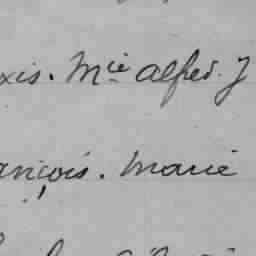 xis. Mie Alfred. J
ançois. Marie